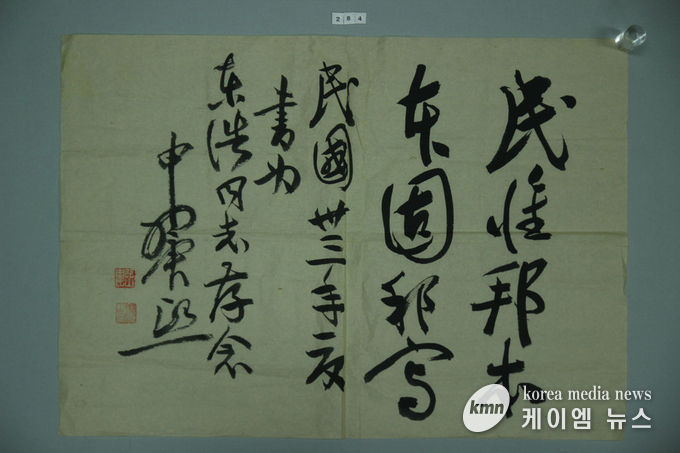 284
民惟邦本
本固邦寧
民國卅三年夏
書為
東浩同志存念
申翼熙
kmn
korea media news
케이엠 뉴스